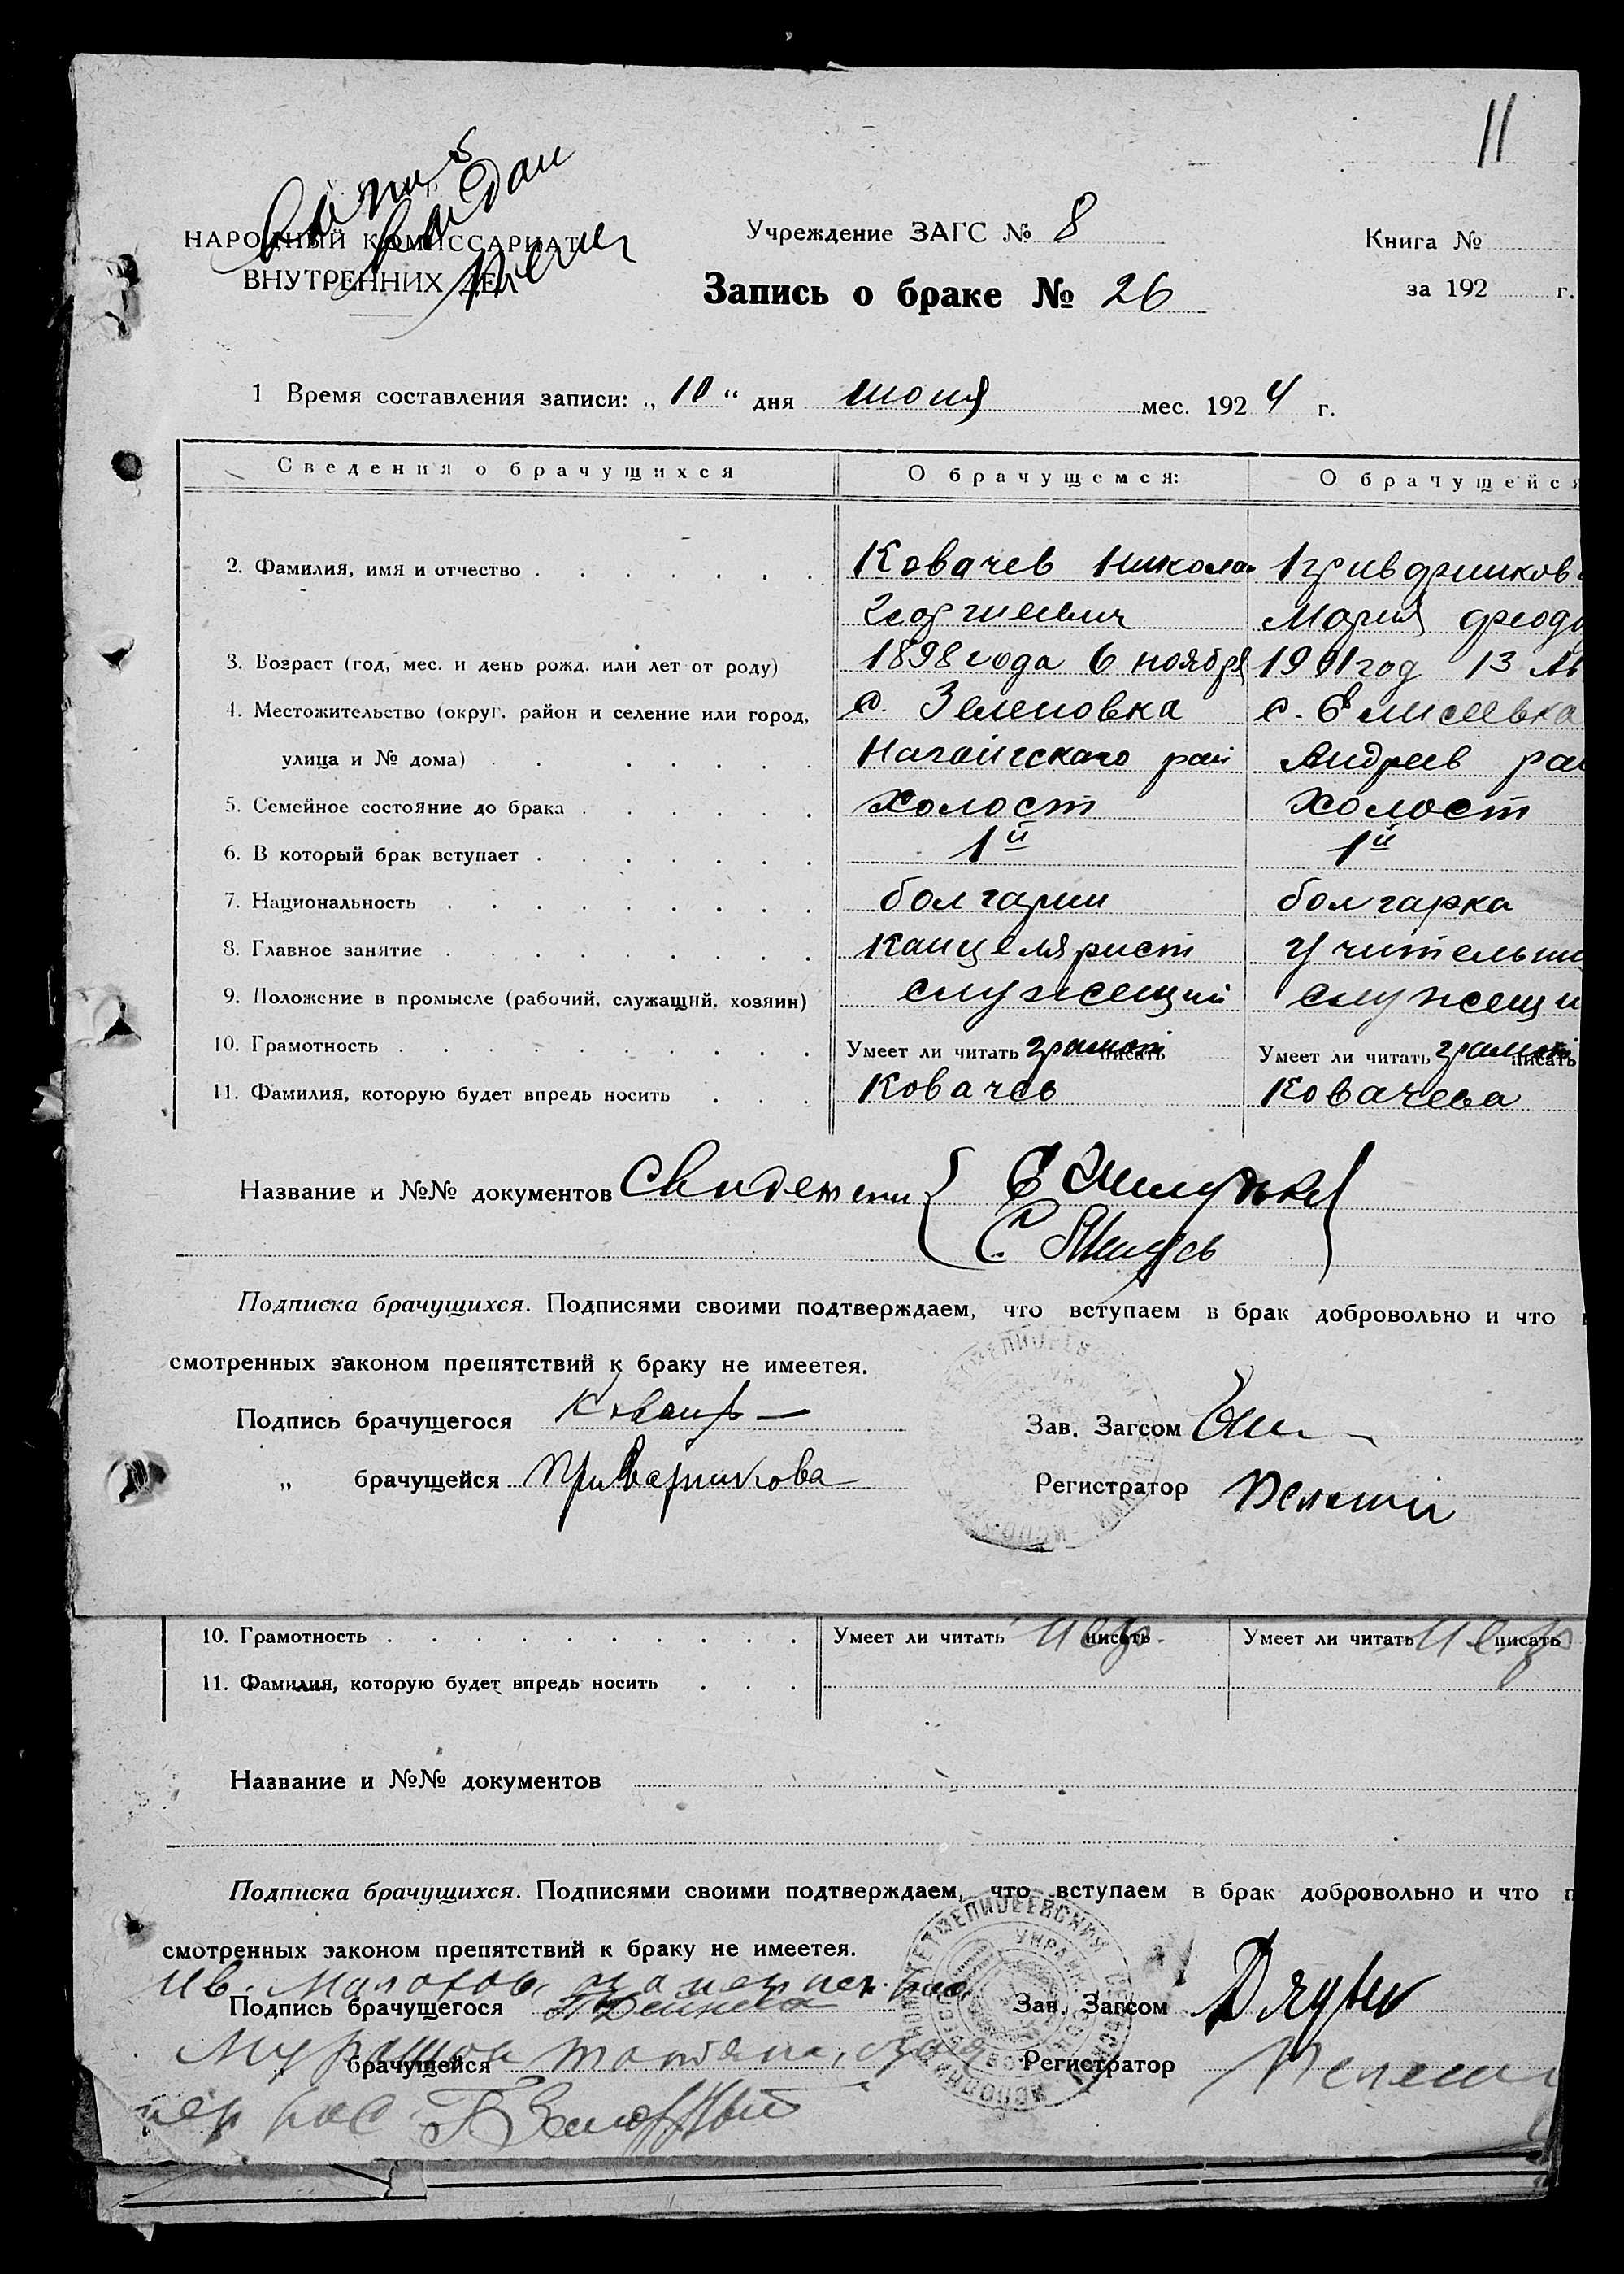 11
НАРОДНЫЙ КОМИССАРИАТ
ВНУТРЕННИХ ДЕЛ
Учреждение ЗАГС № 8
Книга №
Запись о браке № 26
за 192 г.
1 Время составления записи: „ 10 “ дня июня мес. 1924 г.
Сведения о брачущихся О брачущемся: О брачущейся
2. Фамилия, имя и отчество Ковачев Никола
Георгиевич Мария Феодо
3. Возраст (год, мес. и день рожд. или лет от роду) 1898 года 6 ноября 1901 год 13 Ав
4. Местожительство (округ, район и селение или город, с. Зеленовка с. Елисеевка
улица и № дома) Нагайгскаго рай Андреев рай
5. Семейное состояние до брака холост холост
6. В который брак вступает 1й 1й
7. Национальность болгарин болгарка
8. Главное занятие канцелярист учительни
9. Положение в промысле (рабочий, служащий, хозяин) служещий служещи
10. Грамотность Умеет ли читать грамот писать Умеет ли читать грамот писать
11. Фамилия, которую будет впредь носить Ковачев Ковачева
Название и №№ документов Свидетели
Подписка брачущихся. Подписями своими подтверждаем, что вступаем в брак добровольно и что
смотренных законом препятствий к браку не имеетея.
Подпись брачущегося Зав. Загсом
„ брачущейся Приварникова Регистратор
10. Грамотность Умеет ли читать негр. писать Умеет ли читать негр писать
11. Фамилия, которую будет впредь носить
Название и №№ документов
Подписка брачущихся. Подписями своими подтверждаем, что вступаем в брак добровольно и что п
смотренных законом препятствий к браку не имеетея.
Ив.
Подпись брачущегося Зав. Загсом
брачущейся Регистратор